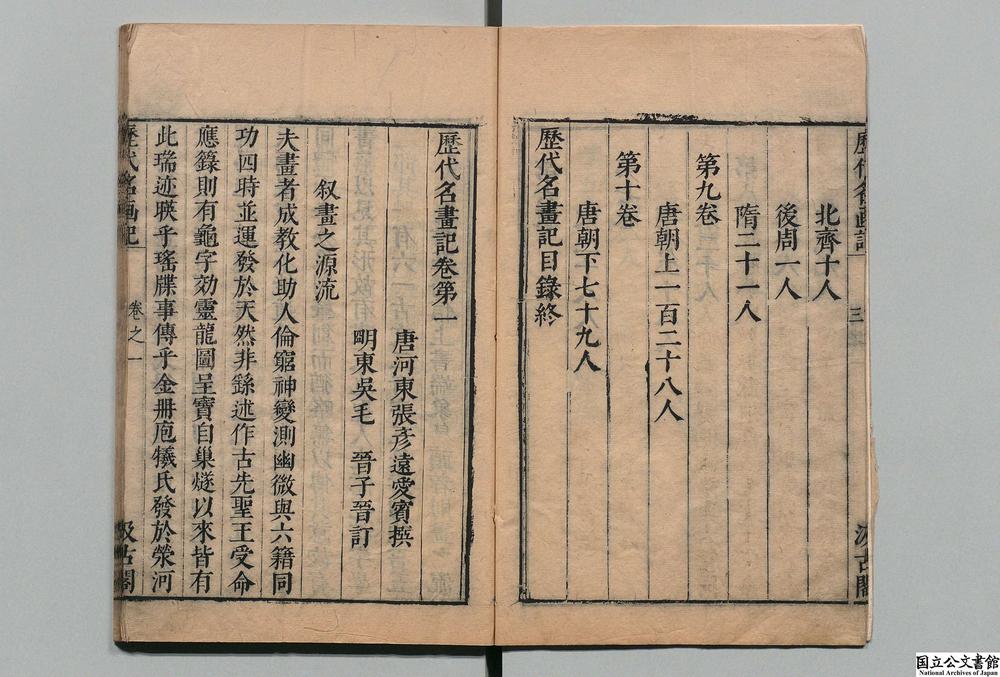 歷代名畫記
三
汲古閣
北齊十人
後周一人
隋二十一人
第九卷
唐朝上一百二十八人
第十卷
唐朝下七十九人
歷代名畫記目錄終
歷代名畫記卷第一
唐河東張彥遠愛賓撰
明東吳毛晉子晉訂
叙畫之源流
夫畫者成教化助人倫窮神變測幽微與六籍同
功四時並運發於天然非繇述作古先聖王受命
應籙則有龜字効靈龍圖呈寶自巢燧以來皆有
此瑞迹暎乎瑤牒事傳乎金册庖犧氏發於滎河
歷代名画記
卷之一
汲古閣
国立公文書館
National Archives of Japan